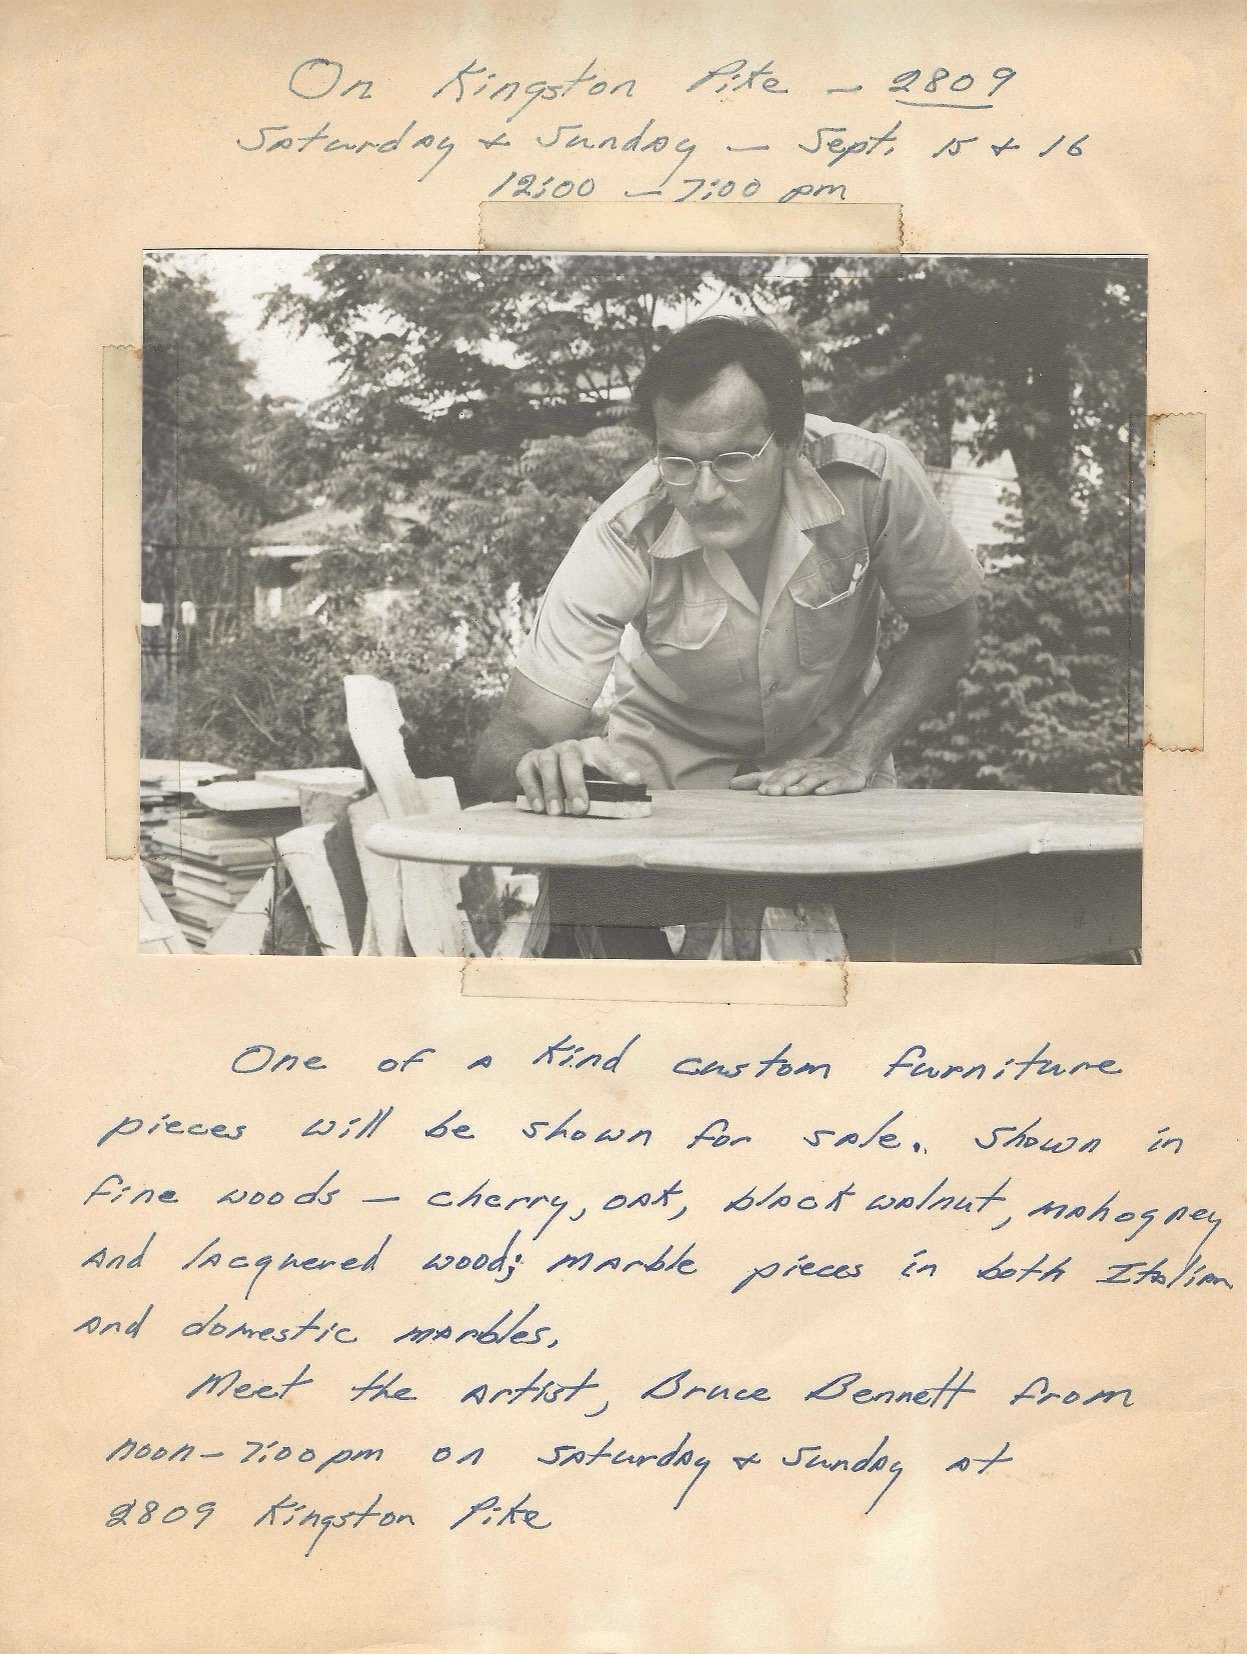 On Kingston Pike - 2809
Saturday & Sunday - Sept. 15 & 16
12:00 - 7:00 pm
One of a kind custom furniture
pieces will be shown for sale. Shown in
fine woods - cherry, oak, black walnut, mahogney
and lacquered wood; marble pieces in both Italian
and domestic marbles.
Meet the artist, Bruce Bennett from
noon - 7:00 pm on Saturday & Sunday at
2809 Kingston Pike